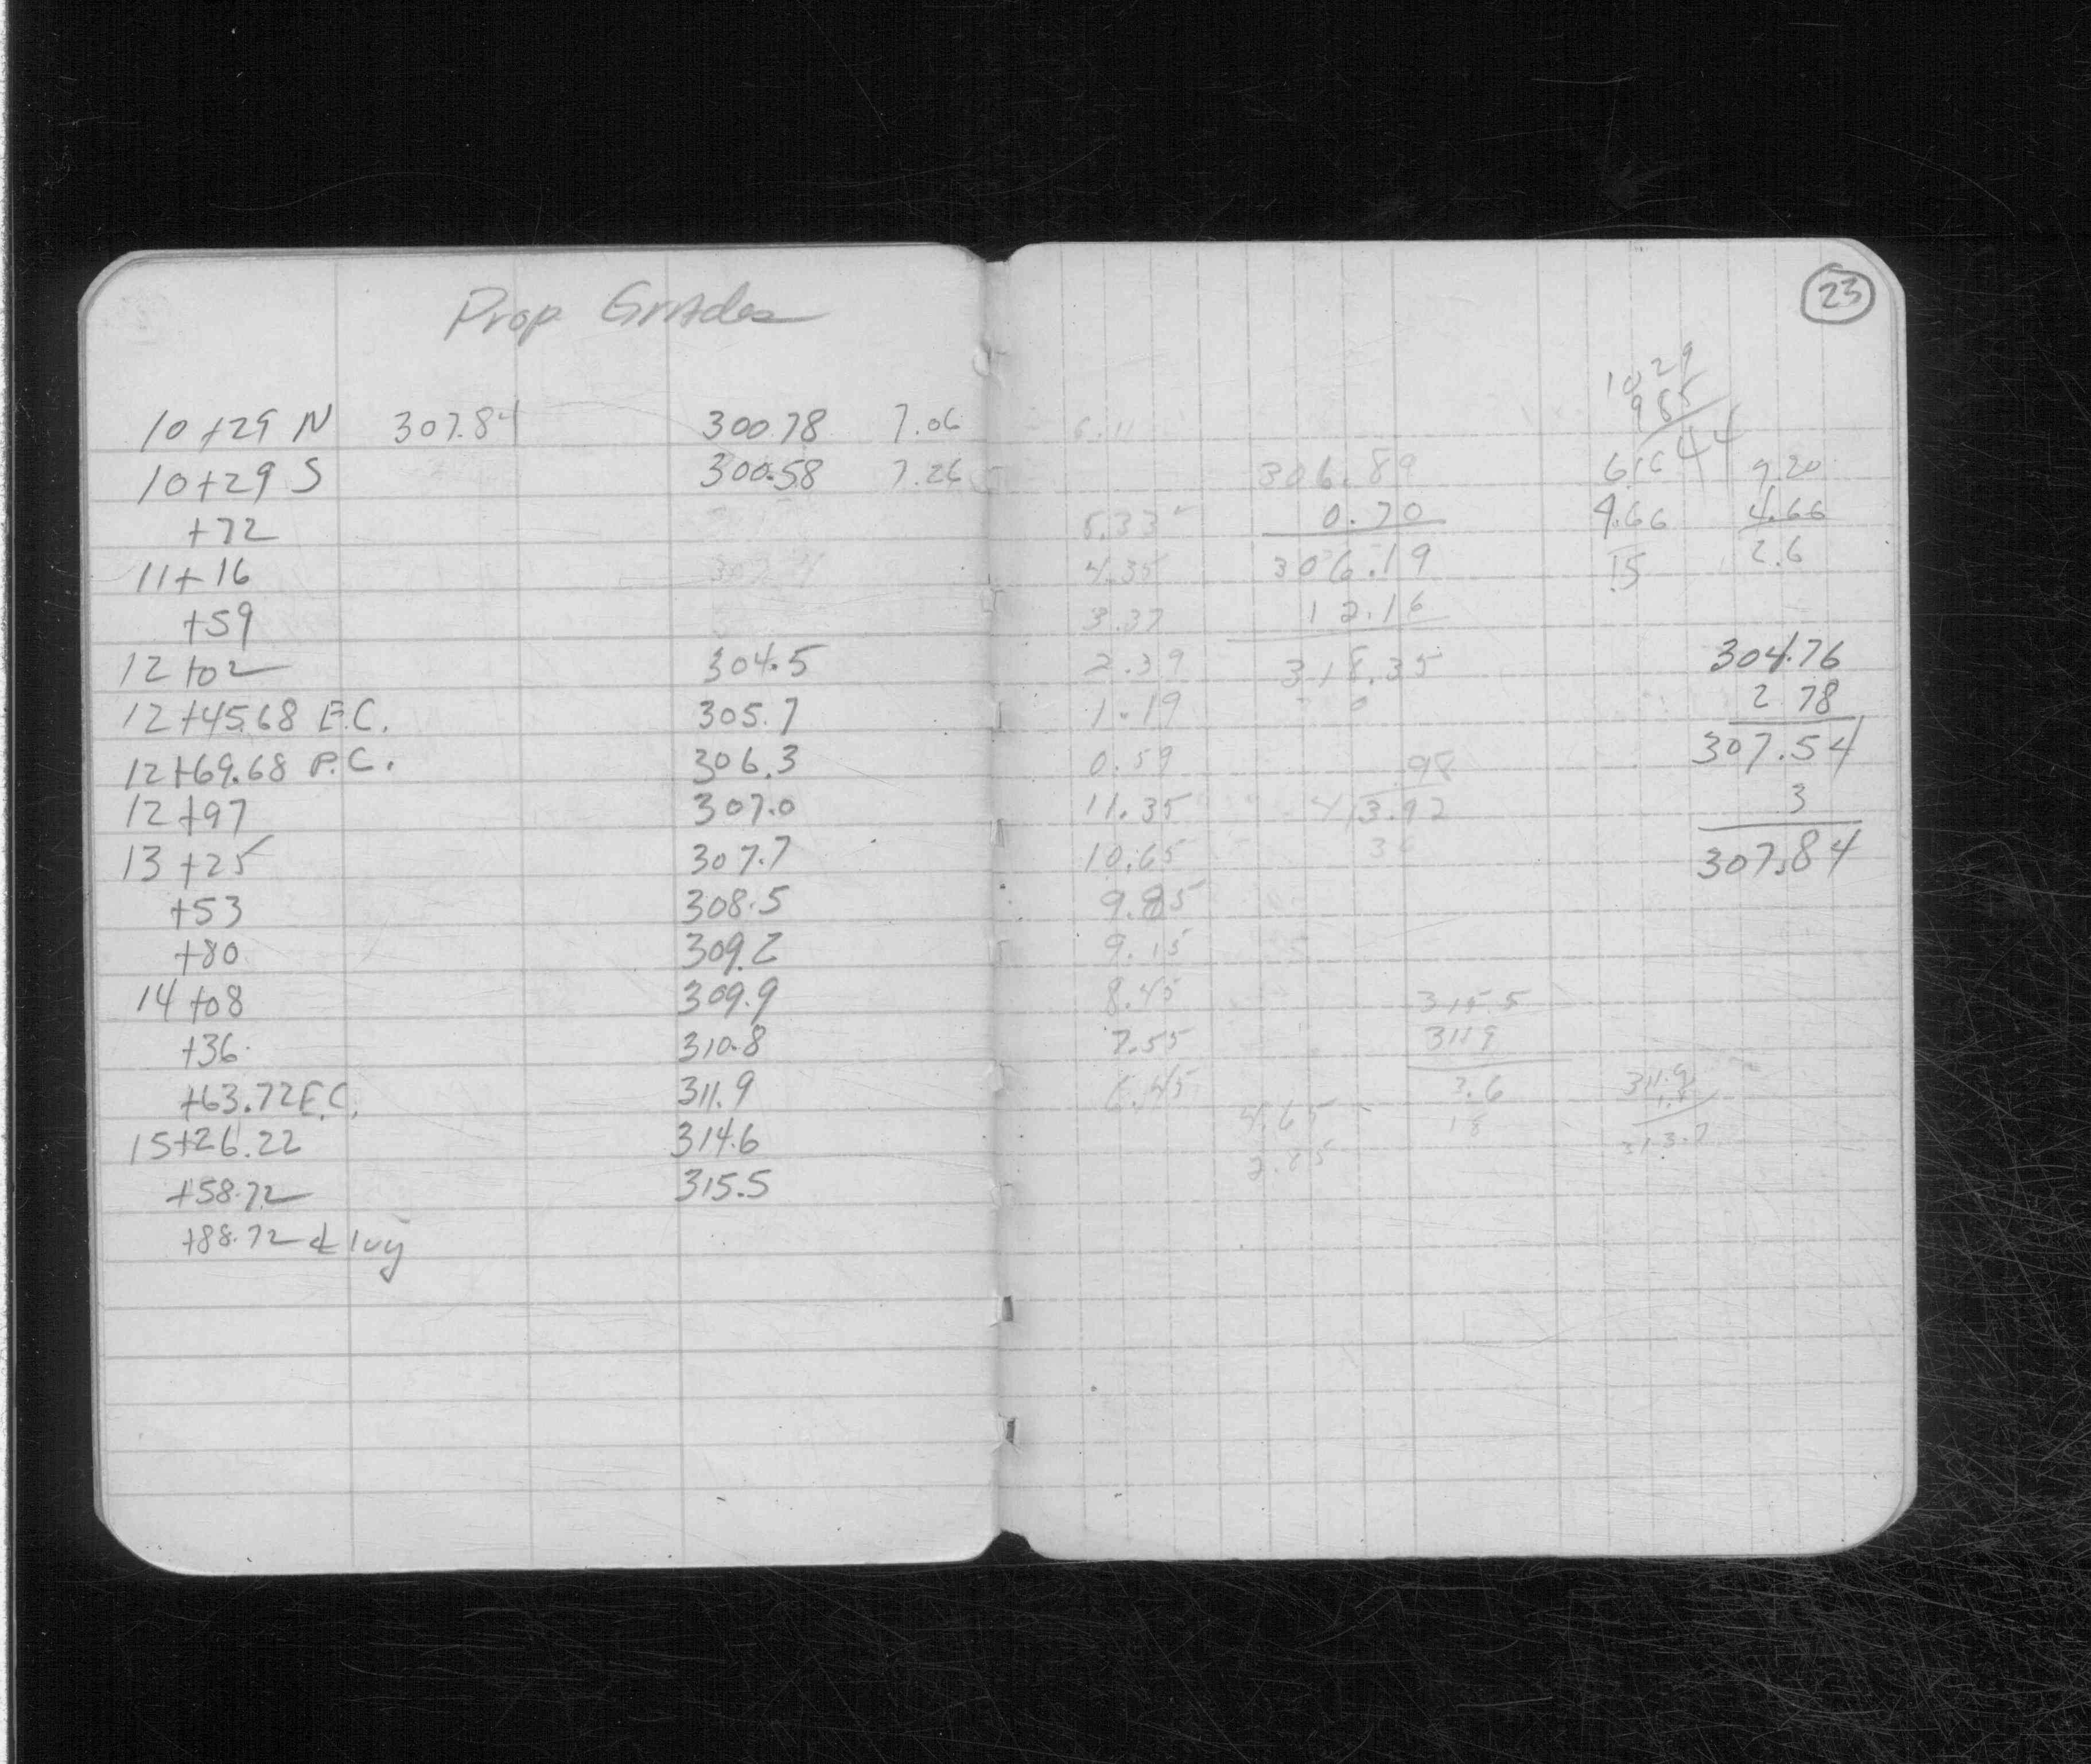 Prop Grades
10+29 N 307.84 300.78 7.06
10+29 S 300.58 7.26
+72
11+16
+59
12+02 304.5
12+45.68 E.C. 305.7
12+69.68 P.C. 306.3
12+97 307.0
13+25 307.7
+53 308.5
+80 309.2
14+08 309.9
+36 310.8
+63.72 E.C. 311.9
15+26.22 314.6
+58.72 315.5
+88.72 ¢ Ivy
23
6.11
5.33
4.35
3.37
2.39
1.19
0.59
11.35
10.65
9.85
9.15
8.45
7.55
6.45
306.89
0.70
306.19
12.16
318.35
.98
4 3.92
36
315.5
311.9
3.6
18
4.65
2.85
10 29
9 85
44
6.16
4.66
15
9.20
4.66
2.6
304.76
2 78
307.54
3
307.84
311.9
1.8
313.7